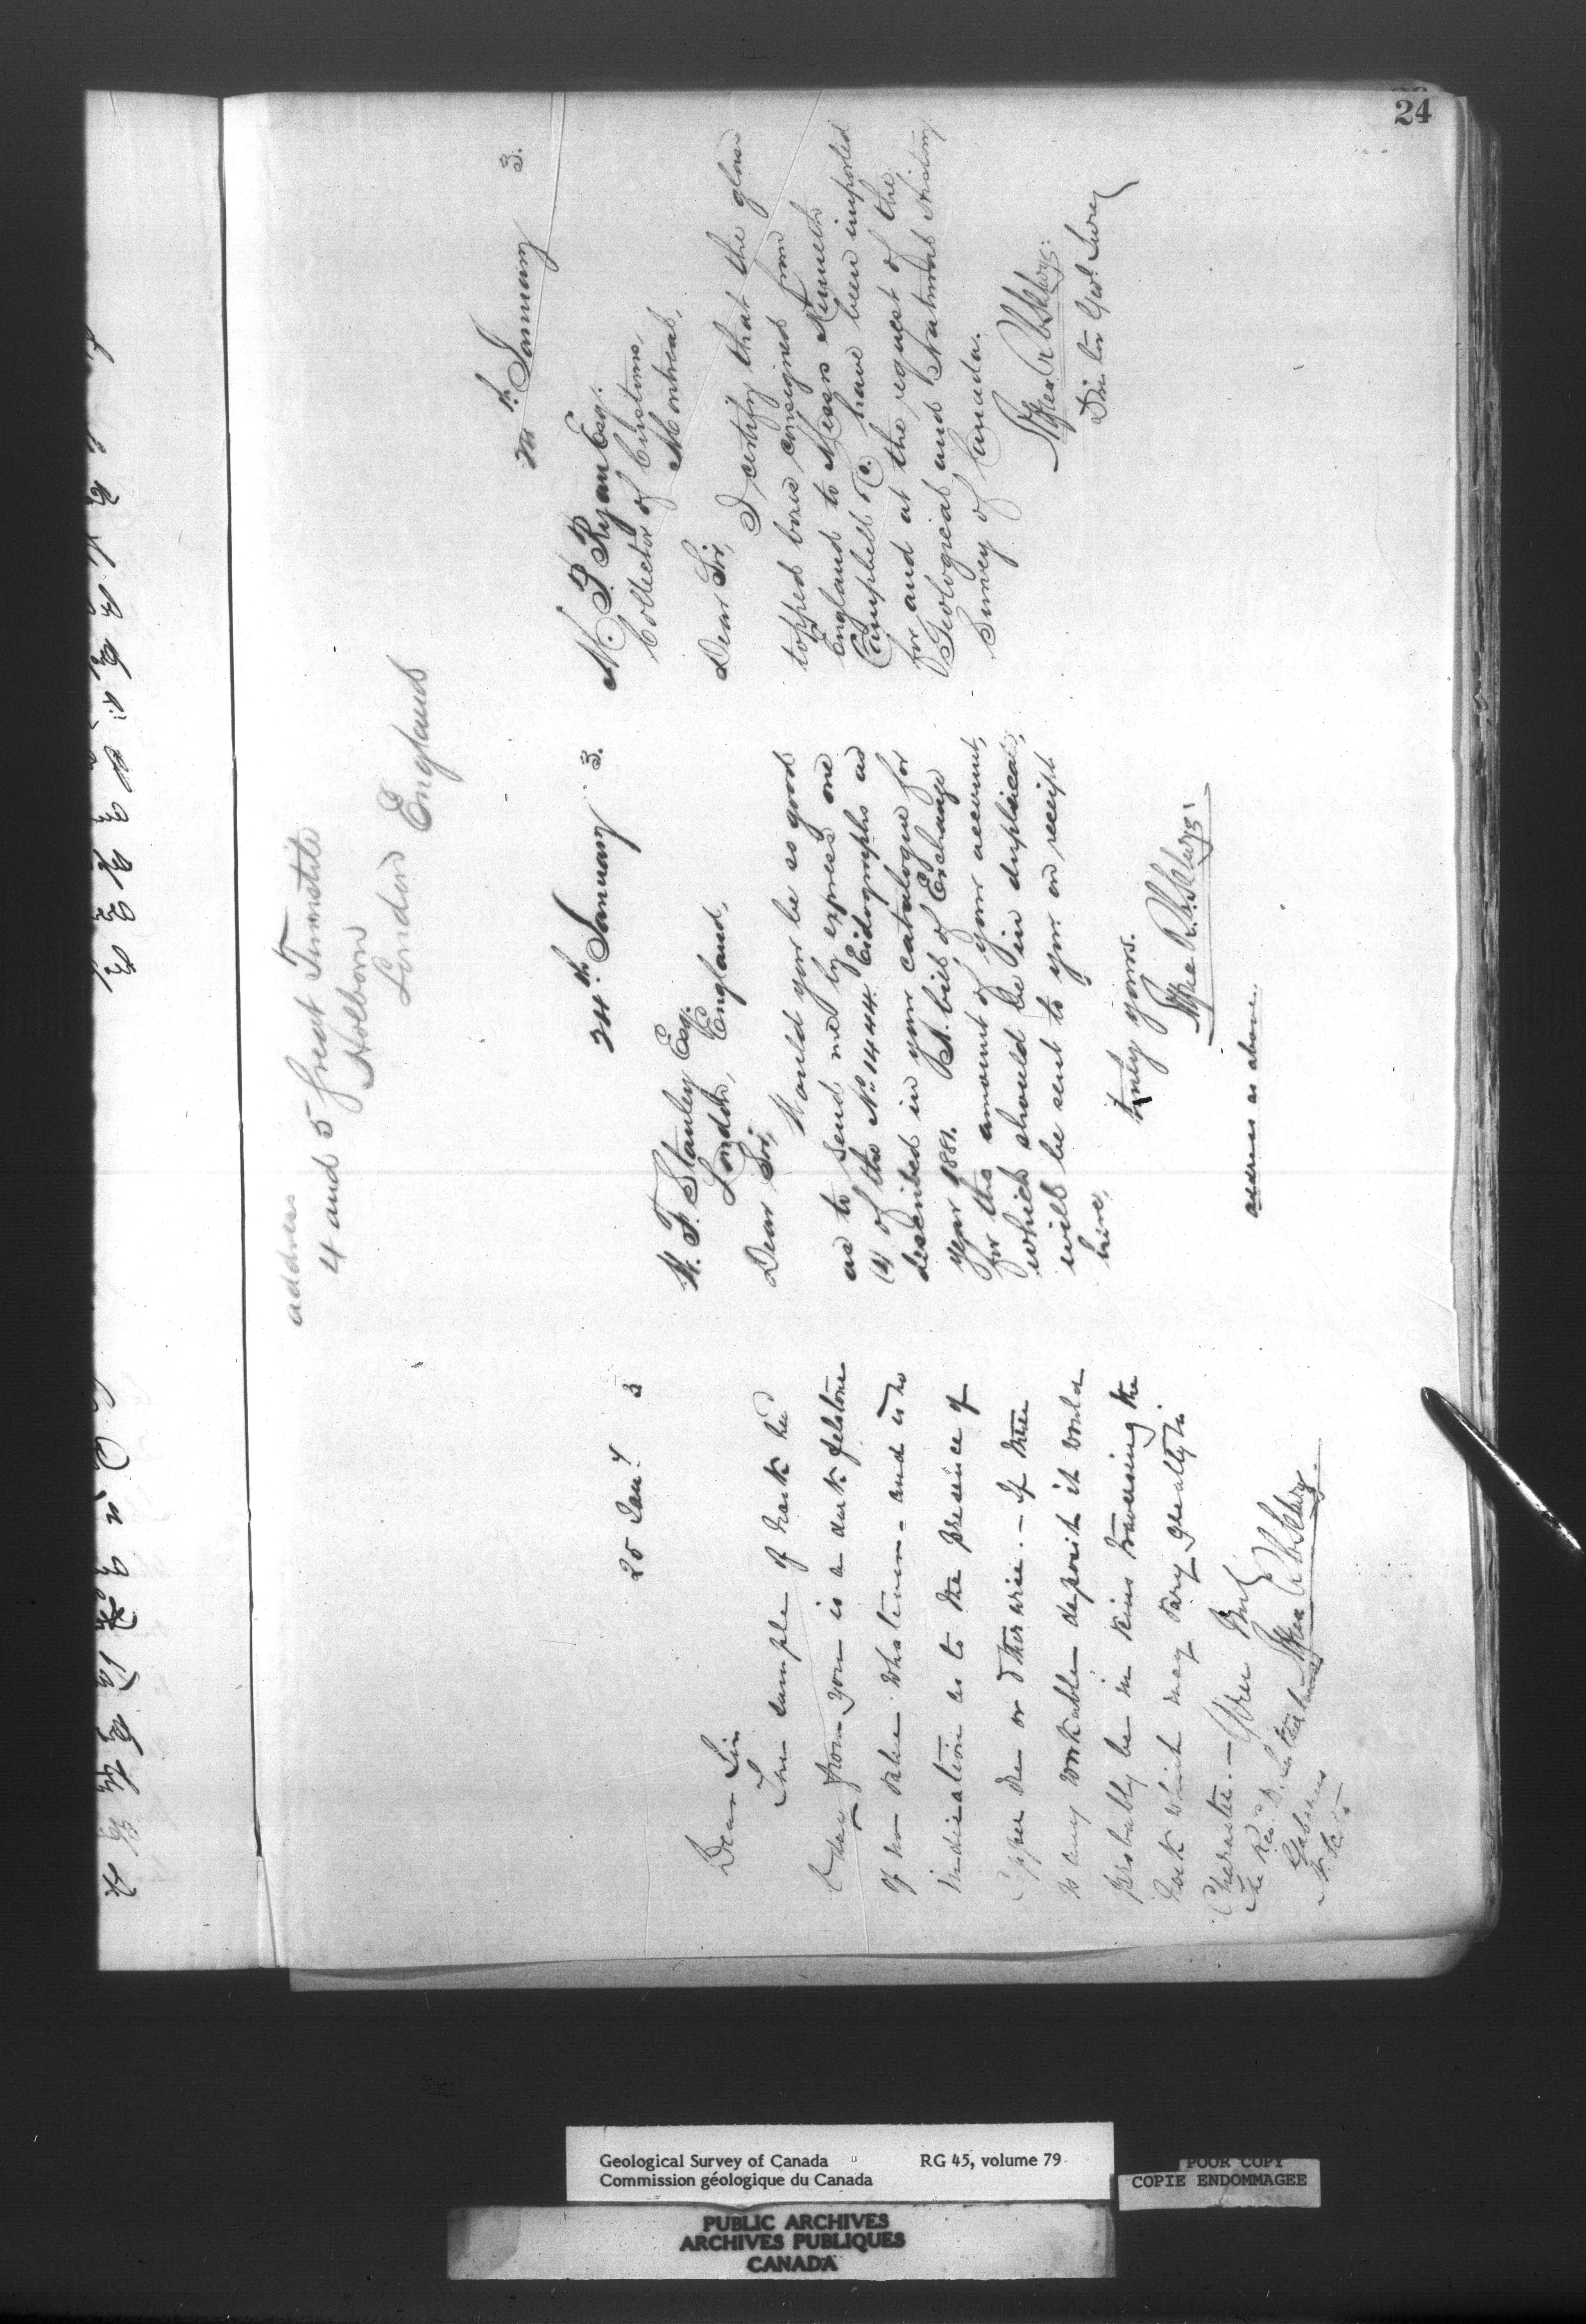 24
address
4 and 5 Great Turnstile
Holborn
London England
25 Jany 3
Dear Sir
The sample of rock recd
from you is a dark felstone
of no value whatever - and is no
indication as to the presence of
Copper ore or otherwise. - If there
is any workable deposit it would
probably be in veins traversing the
rock which may vary greatly in
Character. - Yours truly
Alfred R. C. Selwyn
The Revd D.
Gabarus
24th January 3.
W. F. Stanley Esq.
London, England,
Dear Sir,
Would you be so good
as to send me by express one
(1) of the No. 1444 Eidographs as
described in your catalogue for
year 1881. A bill of Exchange
for the amount of your account,
which should be in duplicate,
will be sent to you on receipt
here,
truly yours.
Alfred R. C. Selwyn
address as above.
24th January 3.
M. P. Ryan Esq.
Collector of Customs,
Montreal,
Dear Sir,
I certify that the glass
topped boxes consigned from
England to Messrs Kenneth
Campbell & Co. have been imported
for and at the request of the
Geological and Natural History
Survey of Canada.
Alfred R. C. Selwyn
Director Geol. Survey
Geological Survey of Canada RG 45, volume 79
Commission géologique du Canada
POOR COPY
COPIE ENDOMMAGEE
PUBLIC ARCHIVES
ARCHIVES PUBLIQUES
CANADA